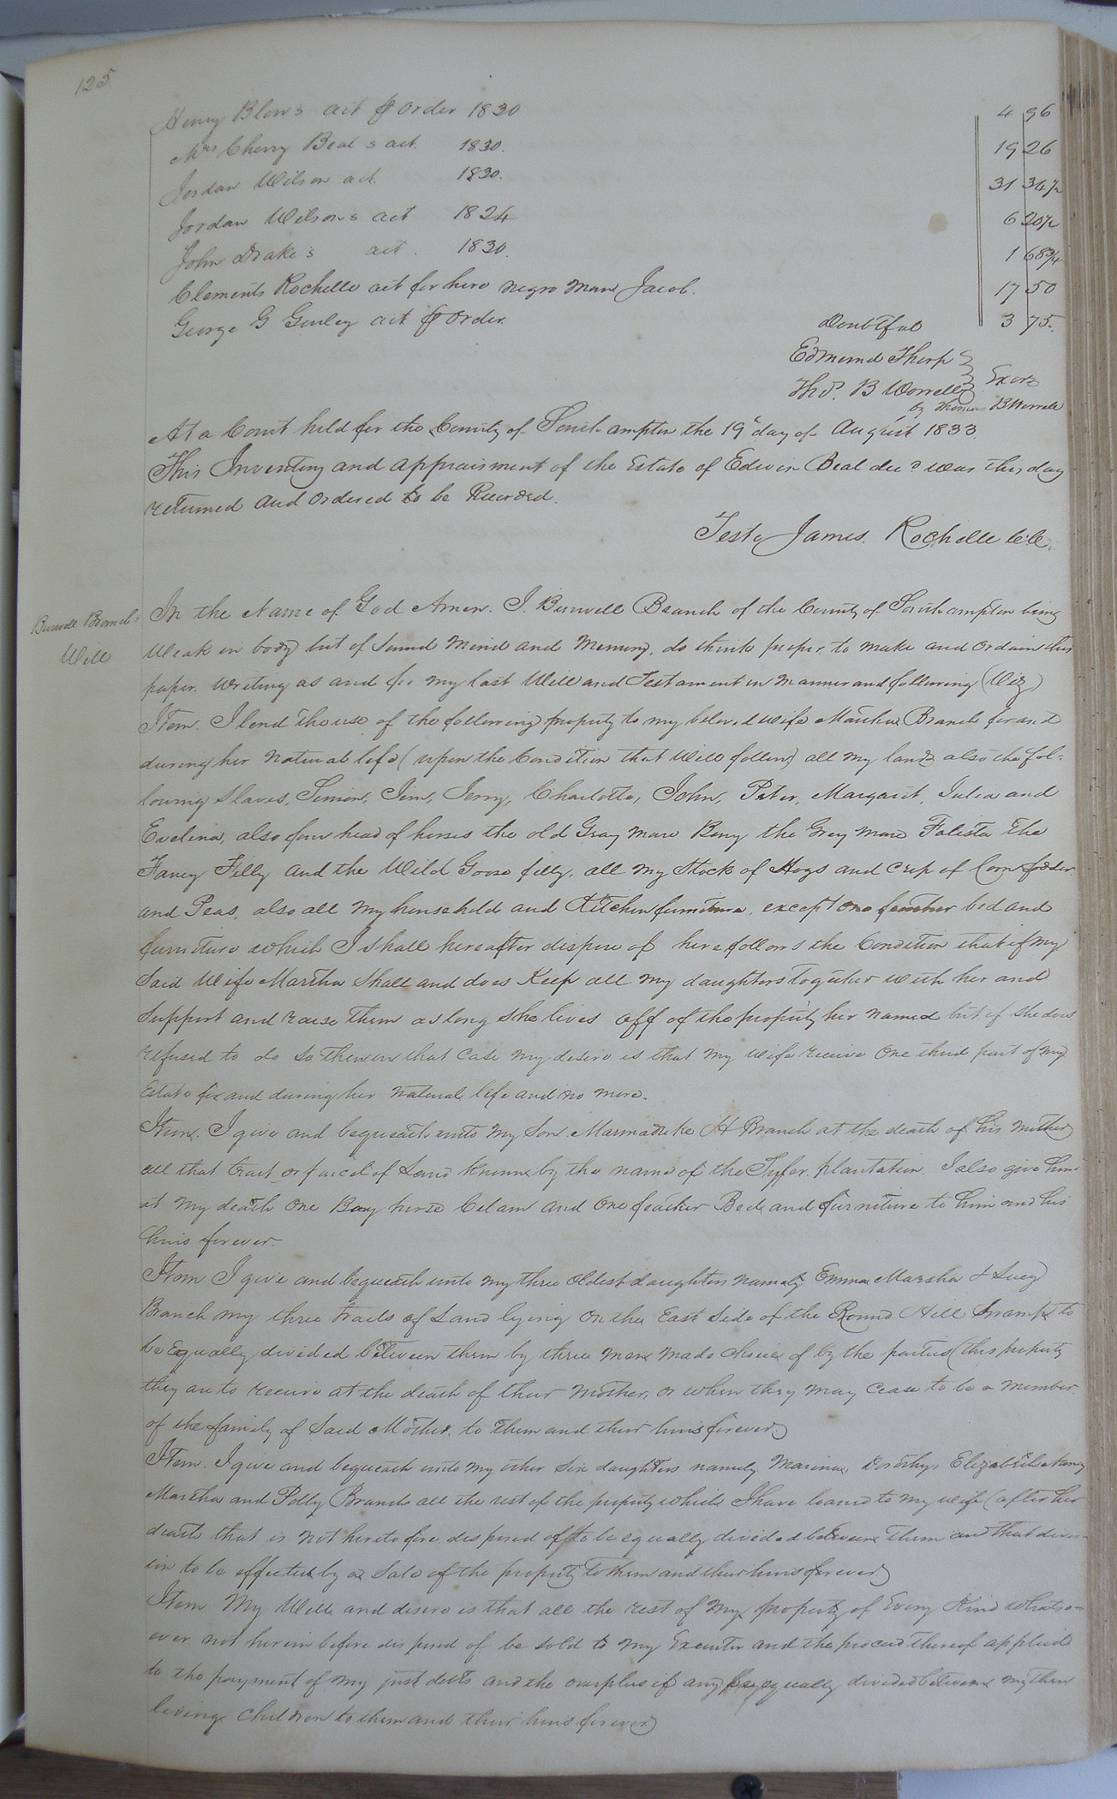 125
Henry Blow's act & order 1830 4 96
Mrs Cherry Beal's act. 1830. 19 26
Jordan Wilson act. 1830. 31 34½
Jordan Wilson's act 1824 6 20½
John Drake's act. 1830. 1 68¾
Clements Rochelle act for hire negro man Jacob. 17 50
George G Gurley act & order. Doubtful 3 75.
Edmund Tharp
Thos. B Worrell Exors
by Thomas B Worrell
At a Court held for the County of Southampton the 19th day of August 1833.
This Inventory and appraisment of the Estate of Edwin Beal decd was this day
returned and ordered to be Recorded.
Teste James Rochelle Clk.
Burwell Branch's
Will
In the Name of God Amen. I. Burwell Branch of the County of Southampton being
Weak in body but of Sound Mind and Memory. do think proper to make and ordain this
paper writing as and for my last Will and Testament in Manner and following (Viz)
Item. I lend the use of the following property to my beloved wife Martha Branch for and
during her natural life (upon the Condition that Will follow) all my land also the fol-
lowing Slaves, Simon, Jim, Jerry, Charlotte, John, Peter, Margaret, Julia and
Evelina, also four head of horses the old Gray mare Beny the Grey mare Falista The
Fancy Filly and the Wild Goose filly, all my Stock of Hogs and crop of Corn fodder
and Peas, also all my household and Kitchen furniture, except one feather bed and
furniture which I shall hereafter dispose of here follows the Condition that if my
Said Wife Martha Shall and does Keep all my daughters together with her and
Support and raise them as long She lives off of the property her named but if She does
refused to do So then in that case my desire is that my wife receive One third part of my
Estate for and during her natural life and no more.
Item. I give and bequeath unto my Son Marmaduke H Branch at the death of his Mother
all that tract or parcel of Land known by the name of the plantation I also give him
at my death one Bay horse and One feather Bed and furniture to him and his
heirs forever.
Item I give and bequeath unto my three Oldest daughters namely Emma Marsha & Lucy
Branch my three tracts of Land lying on the East Side of the Round Hill Swamp to
be Equally divided between them by three men made choice of by the parties (this property
they are to receive at the death of their Mother, or when they may cease to be a member
of the family of Said Mother, to them and their heirs forever)
Item. I give and bequeath unto my other Six daughters namely Marina, Dorothy, Elizabeth Nancy
Martha and Polly Branch all the rest of the property which I have loaned to my wife (after her
death that is not heretofore disposed of) to be equally divided between them and that divis-
ion to be effected by a Sale of the property to them and their heirs forever)
Item My Will and desire is that all the rest of my property of Every Kind whatso-
ever not herein before disposed of be sold by my Executor and the proceed thereof applied
to the payment of my just debts and the overplus if any be equally divided between my then
living children to them and their heirs forever)